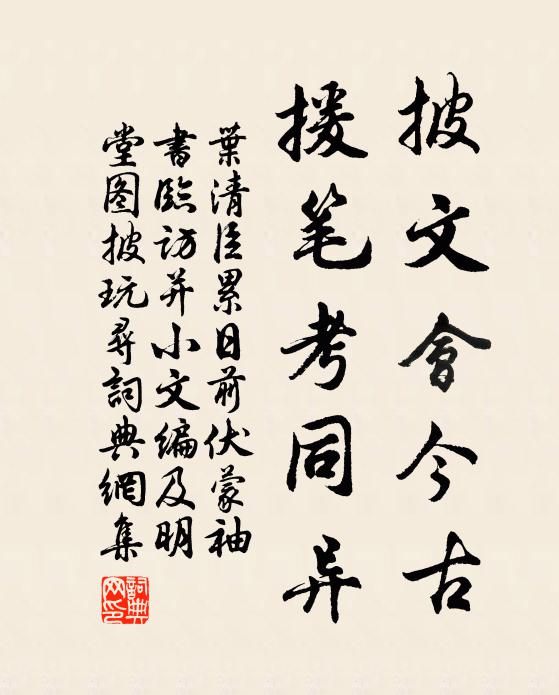 披文會今古
援笔考同异
葉清臣累日前伏蒙袖
書臨訪并小文編及明
堂图披玩尋詞典網集
詞典
网印